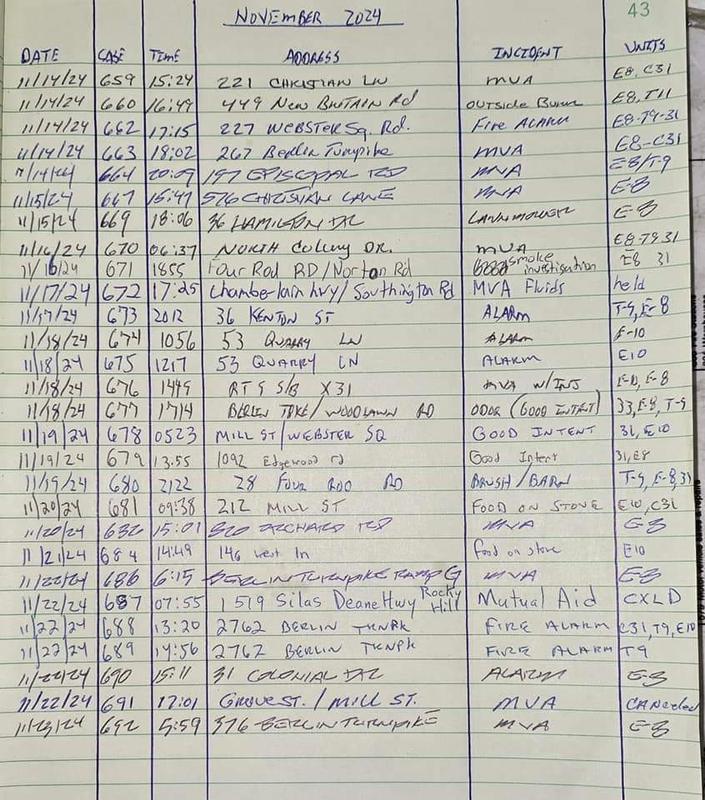 NOVEMBER 2024 43
DATE CASE TIME ADDRESS INCIDENT UNITS
11/14/24 659 15:24 221 CHRISTIAN LN MVA E8, C31
11/14/24 660 16:49 449 NEW BRITAIN Rd OUTSIDE BURN E8, T11
11/14/24 662 17:15 227 WEBSTER Sq. Rd. Fire ALARM E8-T9-31
11/14/24 663 18:02 267 Berlin Turnpike MVA E8-C31
11/14/24 664 20:09 197 EPISCOPAL RD MVA E8/T-9
11/15/24 667 15:47 576 CHRISTIAN LANE MVA E-8
11/15/24 669 18:06 36 HAMILTON DR LAWNMOWER E-8
11/16/24 670 06:37 NORTH Colony DR. MVA E8-T9-31
11/16/24 671 1855 Four Rod RD/Norton Rd smoke investigation E8 31
11/17/24 672 17:25 Chamberlain hwy/Southington Rd MVA Fluids held
11/17/24 673 2012 36 KENTON ST ALARM T-9, E-8
11/18/24 674 1056 53 QUARRY LN ALARM E-10
11/18/24 675 1217 53 QUARRY LN ALARM E10
11/18/24 676 1449 RT 9 S/B X31 MVA W/INJ E-10, E-8
11/18/24 677 1714 BERLIN TPKE/WOODLAWN RD ODOR (GOOD INTENT) 33, E-8, T-9
11/19/24 678 0523 MILL ST/WEBSTER SQ GOOD INTENT 31, E10
11/19/24 679 13:55 1092 Edgewood rd Good Intent 31, E8
11/19/24 680 2122 28 FOUR ROD RD BRUSH/BARN T-9, E-8, 31
11/20/24 681 09:38 212 MILL ST FOOD ON STOVE E10, C31
11/20/24 682 15:01 ORCHARD RD MVA E-8
11/21/24 684 14:49 146 west ln food on stove E10
11/22/24 686 6:15 BERLIN TURNPIKE RAMP G MVA E-8
11/22/24 687 07:55 1519 Silas Deane Hwy Rocky Hill Mutual Aid CXLD
11/22/24 688 13:20 2762 BERLIN TRNPK FIRE ALARM C31, T9, E10
11/22/24 689 14:56 2762 BERLIN TRNPK FIRE ALARM T9
11/22/24 690 15:11 31 COLONIAL DR ALARM E-8
11/22/24 691 17:01 Grove ST. / MILL ST. MVA Canceled
11/23/24 692 5:59 376 BERLIN TURNPIKE MVA E-8